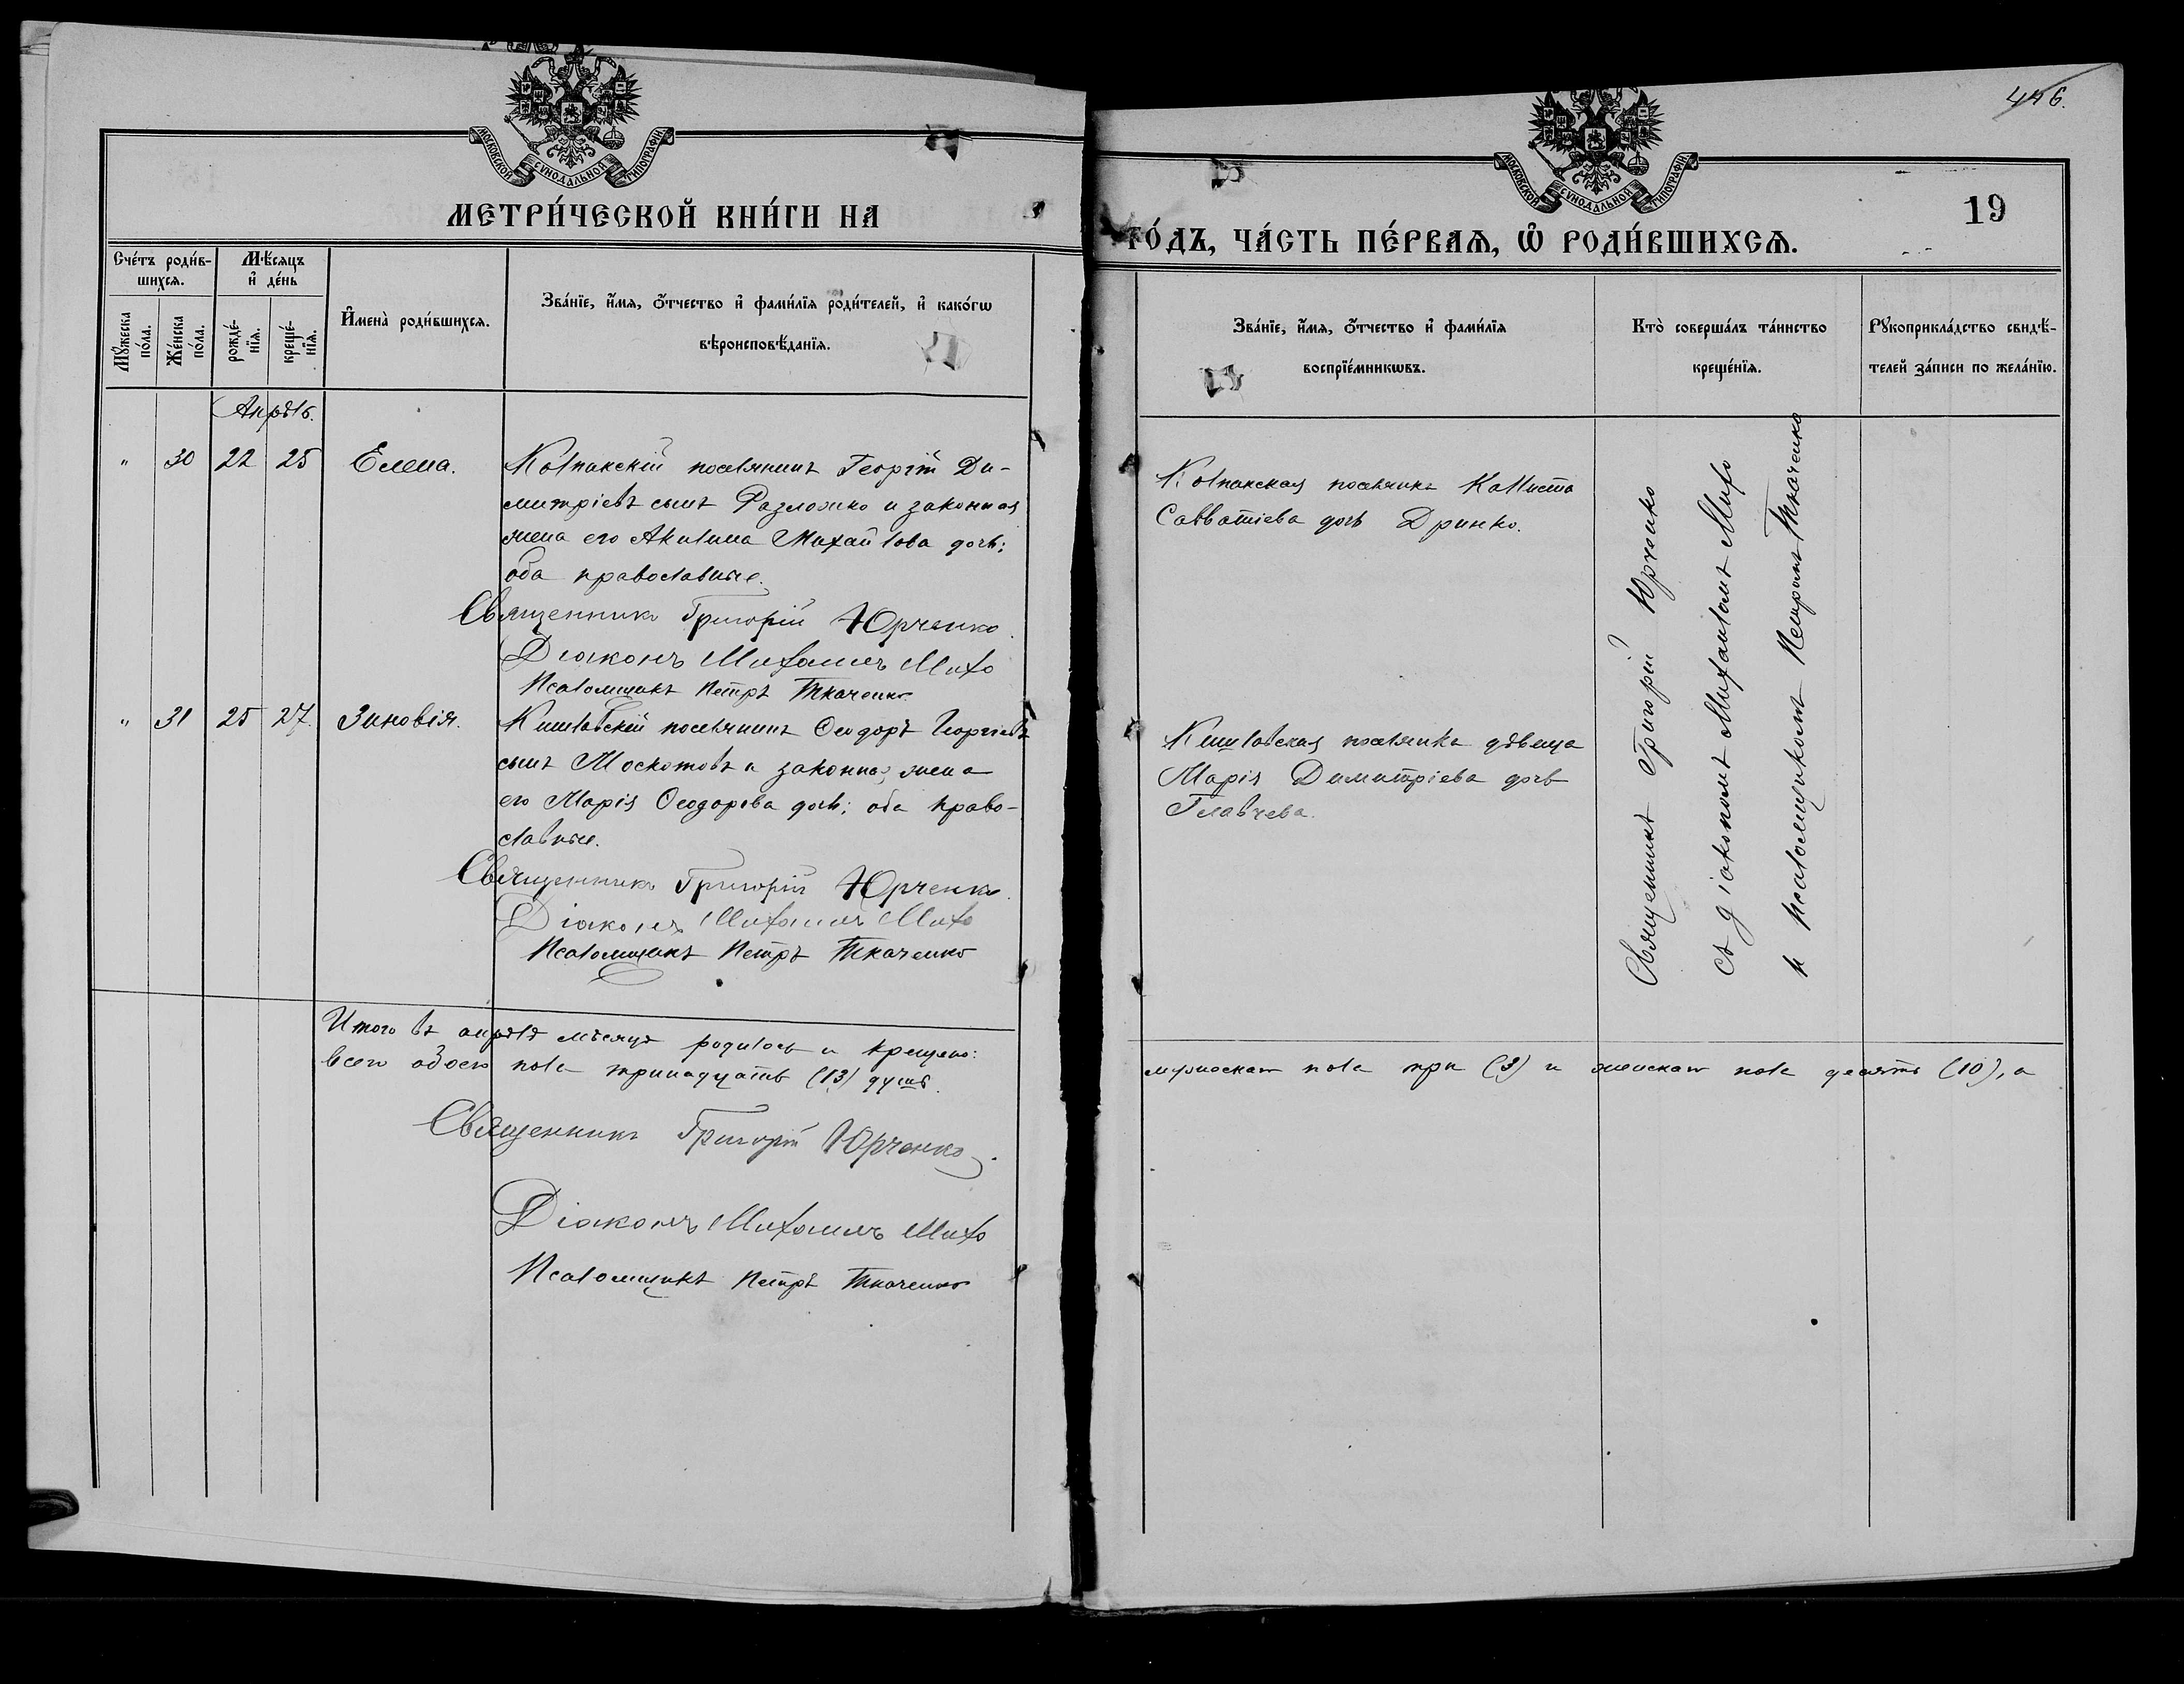 446.
19
МОСКОВСКОЙ СѴНОДАЛЬНОЙ ТИПОГРАФІИ
МОСКОВСКОЙ СѴНОДАЛЬНОЙ ТИПОГРАФІИ
МЕТРИ́ЧЕСКОЙ КНИ́ГИ НА
ГО́ДЪ, ЧА́СТЬ ПЕ́РВАѦ, Ѡ҆ РОДИ́ВШИХСѦ.
Сче́тъ роди́в-
шихсѧ.
Мѣ́сѧцъ
и҆ де́нь
Мꙋ́жеска
по́ла.
Же́нска
по́ла.
рожде́-
нїѧ.
креще́-
нїѧ.
И҆мена̀ роди́вшихсѧ.
Зва́нїе, и҆́мѧ, ѻ҆́тчество и҆ фами́лїѧ роди́телей, и҆ како́гѡ
вѣроисповѣ́данїѧ.
Зва́нїе, и҆́мѧ, ѻ҆́тчество и҆ фами́лїѧ
воспрїе́мникѡвъ.
Кто̀ соверша́лъ та́инство
креще́нїѧ.
Рꙋкоприкла́дство свидѣ́-
телей за́писи по жела́нїю.
Апрѣль.
" 30 22 25 Елена.
Колпакскій поселянинъ Георгій Ди-
митріевъ сынъ Разложко и законная
жена его Акилина Михайлова дочь;
оба православные.
Священникъ Григорій Юрченко.
Діаконъ Михаилъ Михо
Псаломщикъ Петръ Ткаченко
Колпакская поселянка Каллиста
Савватіева дочь Дринко.
" 31 25 27. Зиновія.
Кишловскій поселянинъ Ѳеодоръ Георгіевъ
сынъ Москотовъ и законная жена
его Марія Ѳеодорова дочь; оба право-
славные.
Священникъ Григорій Юрченко.
Діаконъ Михаилъ Михо
Псаломщикъ Петръ Ткаченко
Кишловская поселянка дѣвица
Марія Димитріева дочь
Главчева.
Священникъ Григорій Юрченко
съ діакономъ Михаиломъ Михо
и псаломщикомъ Петромъ Ткаченко
Итого въ апрѣлѣ мѣсяцѣ родилось и крещено:
мужеска пола три (3) и женска пола десять (10), а
всего обоего пола тринадцать (13) душъ.
Священникъ Григорій Юрченко.
Діаконъ Михаилъ Михо
Псаломщикъ Петръ Ткаченко